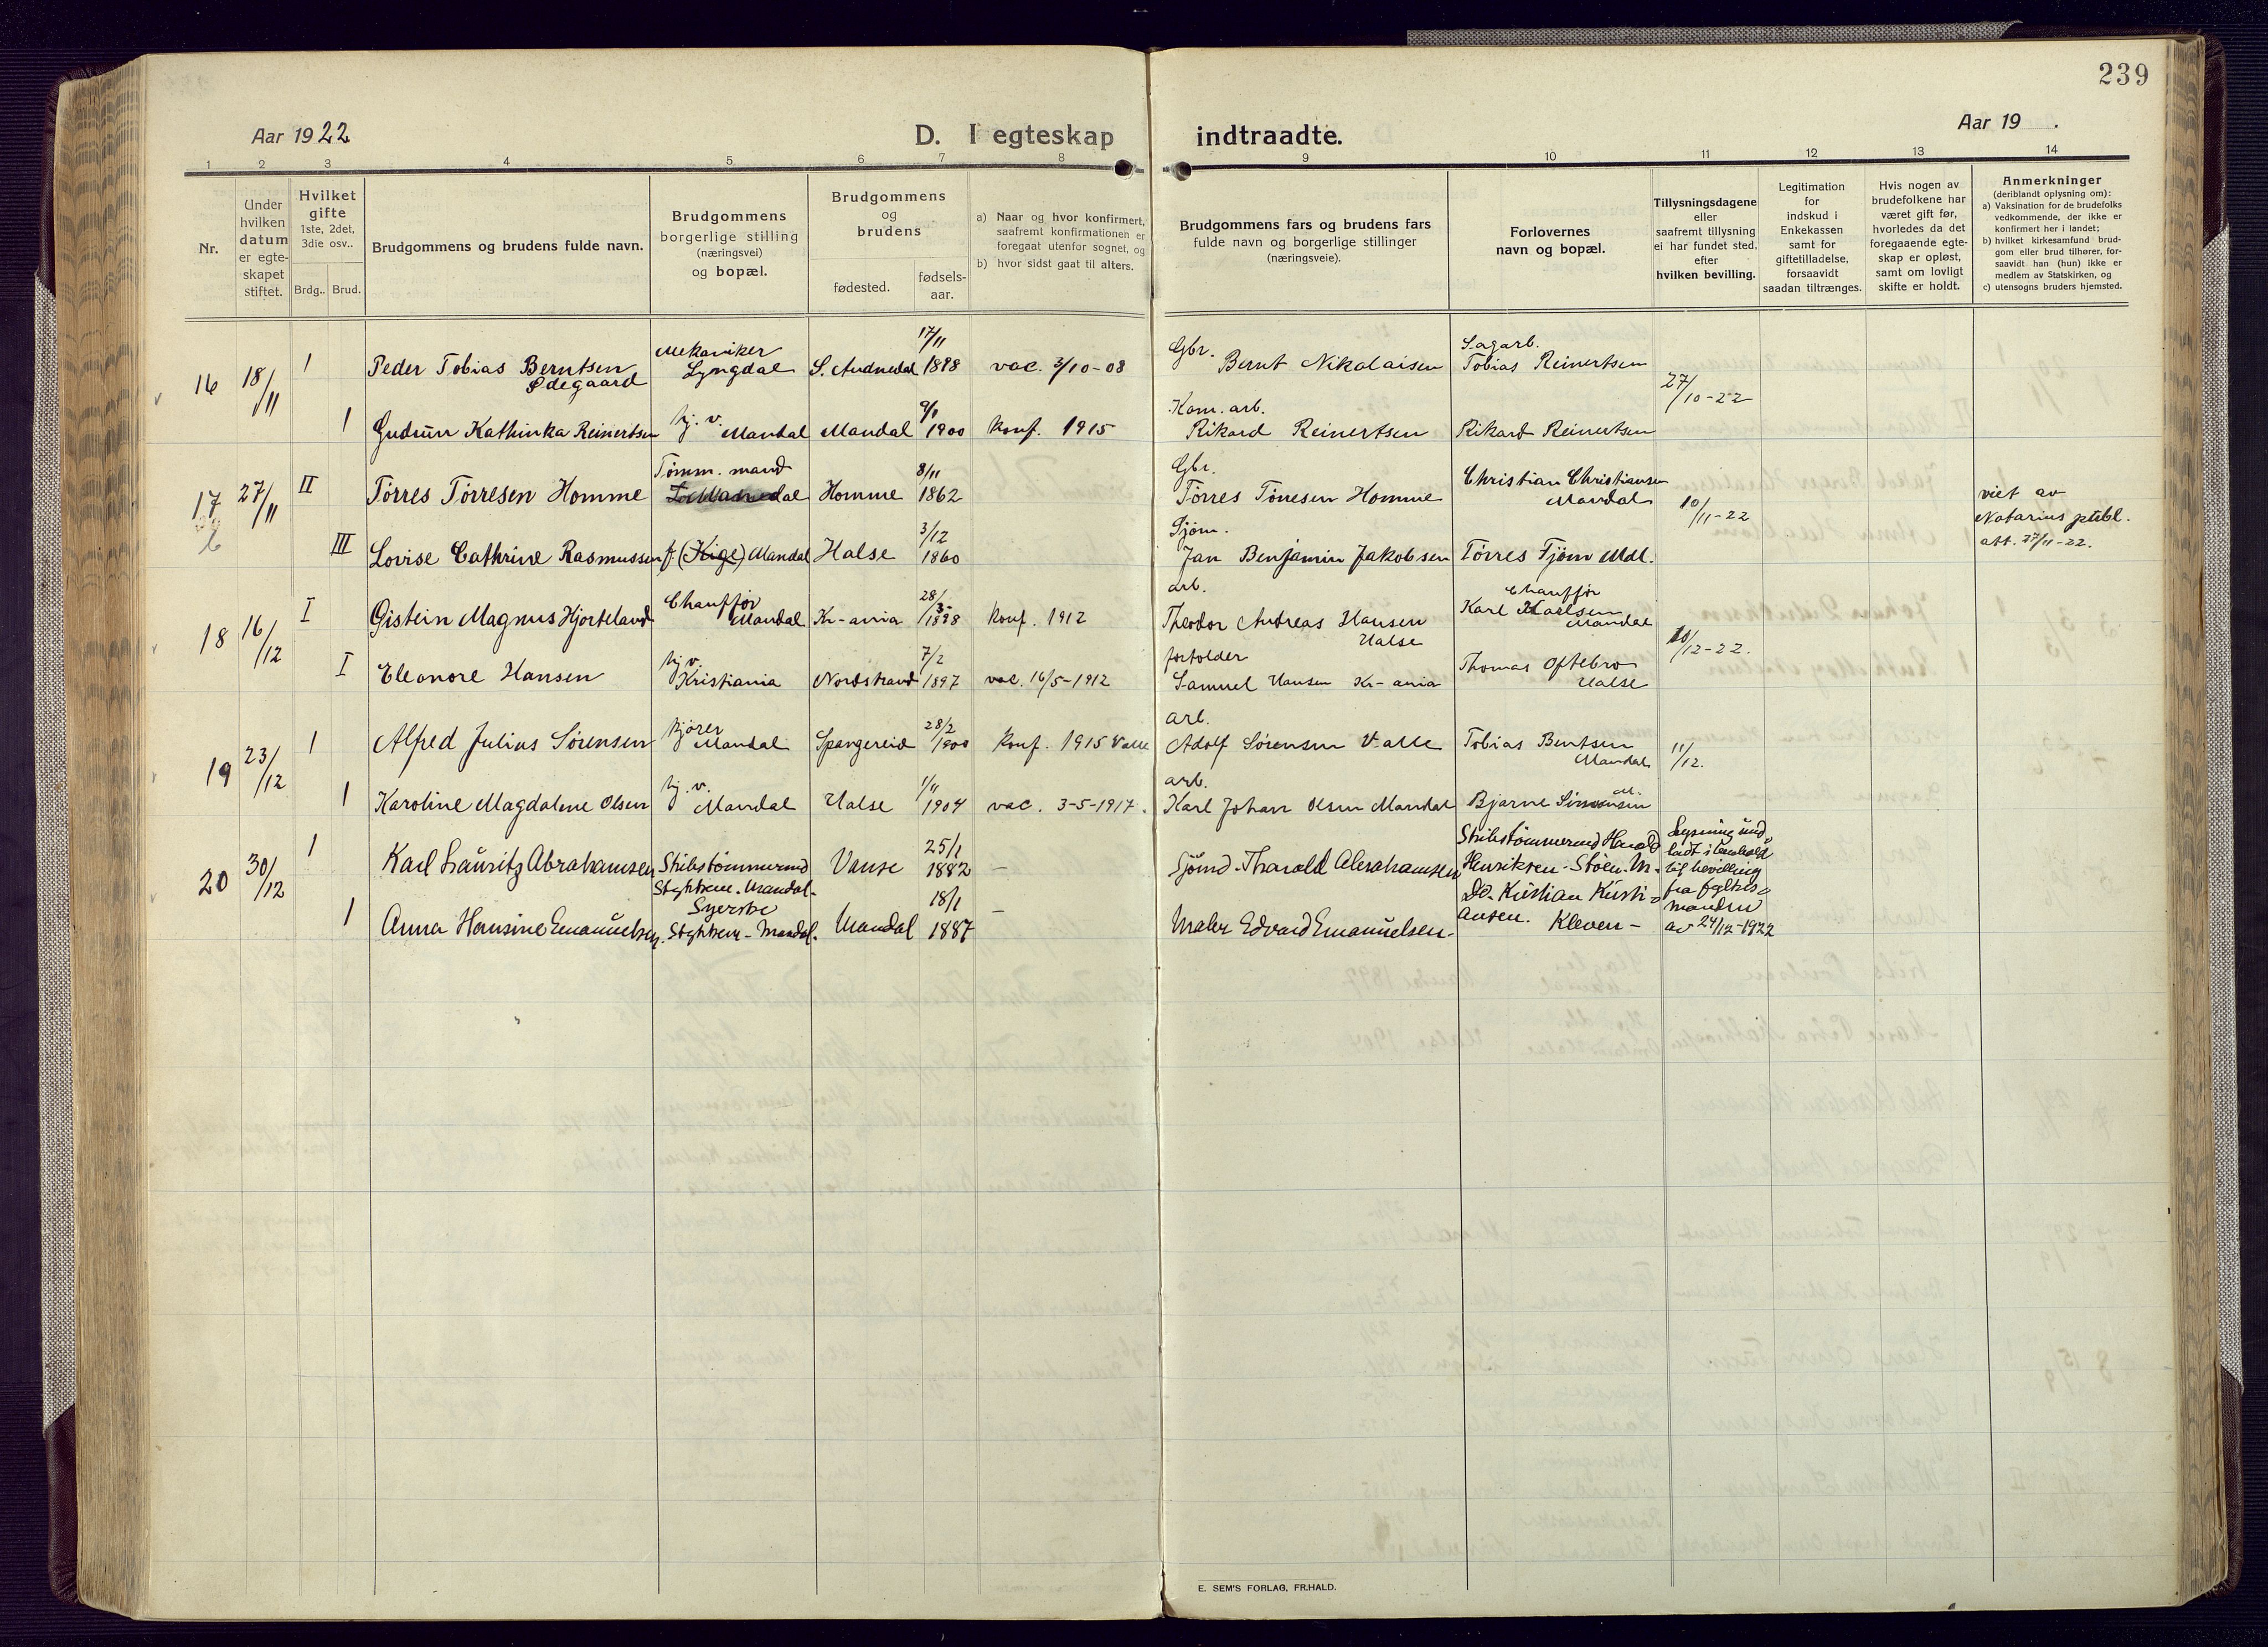 239
Aar 1922
D. I egteskap indtraadte.
Aar 19 .
1 2 3 4 5 6 7 8 9 10 11 12 13 14
Nr.
Under
hvilken
datum
er egte-
skapet
stiftet.
Hvilket
gifte
1ste, 2det,
3die osv..
Brdg.. Brud.
Brudgommens og brudens fulde navn.
Brudgommens
borgerlige stilling
(næringsvei)
og bopæl.
Brudgommens
og
brudens
fødested.
fødsels-
aar.
a) Naar og hvor konfirmert,
saafremt konfirmationen er
foregaat utenfor sognet, og
b) hvor sidst gaat til alters.
Brudgommens fars og brudens fars
fulde navn og borgerlige stillinger
(næringsveie).
Forlovernes
navn og bopæl.
Tillysningsdagene
eller
saafremt tillysning
ei har fundet sted,
efter
hvilken bevilling.
Legitimation
for
indskud i
Enkekassen
samt for
giftetilladelse,
forsaavidt
saadan tiltrænges.
Hvis nogen av
brudefolkene har
været gift før,
hvorledes da det
foregaaende egte-
skap er opløst,
samt om lovligt
skifte er holdt.
Anmerkninger
(deriblandt oplysning om):
a) Vaksination for de brudefolks
vedkommende, der ikke er
konfirmert her i landet;
b) hvilket kirkesamfund brud-
gom eller brud tilhører, for-
saavidt han (hun) ikke er
medlem av Statskirken, og
c) utensogns bruders hjemsted.
16 18/11 1 Peder Tobias Berntsen
Ødegaard
Mekaniker
Lyngdal
S. Audnedal
17/11
1888
vac. 3/10-08
Gbr. Bernt Nikolaisen
Sagarb.
Tobias Reinertsen
27/10-22
1 Gudrun Kathinka Reinertsen
hj. v. Mandal
Mandal
9/1
1900
konf. 1915
Kom. arb.
Rikard Reinertsen
Rikard Reinertsen
17 27/11 II Tørres Tørresen Homme
Tømm. mand
Homme
8/11
1862
Gbr.
Tørres Tørresen Homme
Christian Christiansen
Mandal
10/11-22
viet av
Notarius publ.
att. 27/11-22.
III Lovise Cathrine Rasmussen
f (Kige) Mandal
Halse
3/12
1860
Sjøm.
Jan Benjamin Jakobsen
Tørres Fjøm Mdl.
18 16/12 I Gistein Magnus Hjorteland
Chauffør
Mandal
Kr-ania
28/3-
1898
konf. 1912
arb.
Theodor Andreas Hansen
Halse
Chauffør
Karl Karlsen
Mandal
10/12-22.
I Eleonore Hansen
hj v.
Kristiania
Nordstrand
7/2
1897
vac. 16/5-1912
forfolder
Samuel Hansen Kr-ania
Thomas Oftebro
Halse
19 23/12 1 Alfred Julius Sørensen
kjører
Mandal
Spangereid
28/2
1900
konf. 1915 Valle
arb.
Adolf Sørensen Valle
Tobias Berntsen
Mandal
11/12.
1 Karoline Magdalene Olsen
hj. v.
Mandal
Halse
1/11
1904
vac. 3-5-1917.
arb.
Karl Johan Olsen Mandal
Bjarne Simonsen
20 30/12 1 Karl Lauritz Abrahamsen
Skibstømmermd
Mandal.
Vanse
25/1
1882
—
Sjömd. Tharald Abrahamsen
Skibstømmermd Harald
Henriksen. Støen. M.
Lysning und
ladt i henhold
til bevilling
fra fylkes
manden
av 24/12-1922
1 Anna Hansine Emanuelsen.
Syerske
Mandal.
Mandal
18/1
1887
—
Maler Edvard Emanuelsen.
Do. Kristian Kristi-
ansen. Kleven -
E. SEM'S FORLAG, FR.HALD.